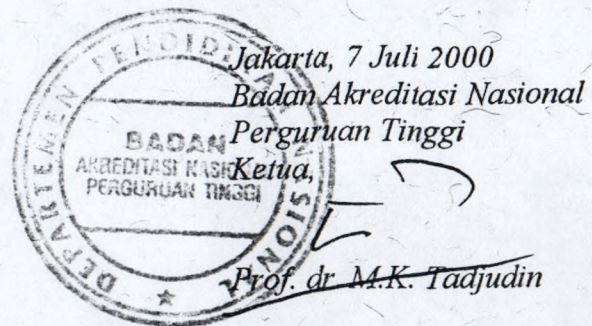 Jakarta, 7 Juli 2000
Badan Akreditasi Nasional
Perguruan Tinggi
Ketua,
Prof. dr. M.K. Tadjudin
DEPARTEMEN PENDIDIKAN NASIONAL
BADAN
AKREDITASI NASIONAL
PERGURUAN TINGGI